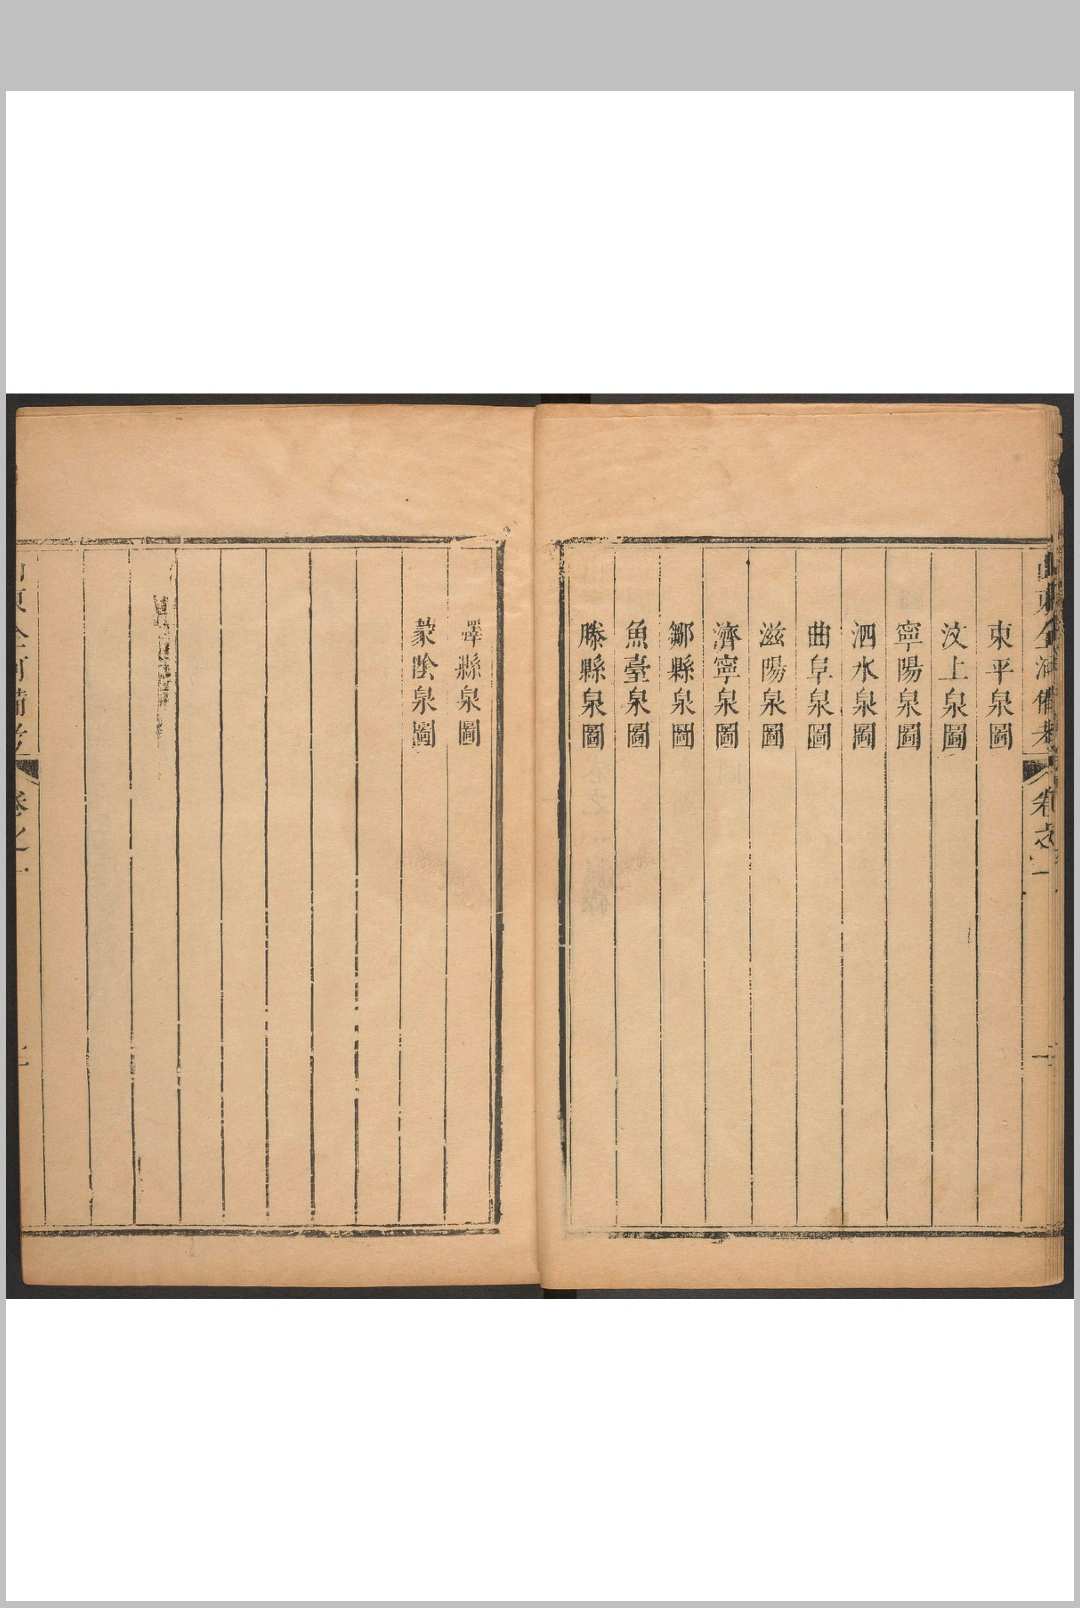 東平泉圖
汶上泉圖
寧陽泉圖
泗水泉圖
曲阜泉圖
滋陽泉圖
濟寧泉圖
鄒縣泉圖
魚臺泉圖
滕縣泉圖
嶧縣泉圖
蒙陰泉圖
山東全河備考
卷之一